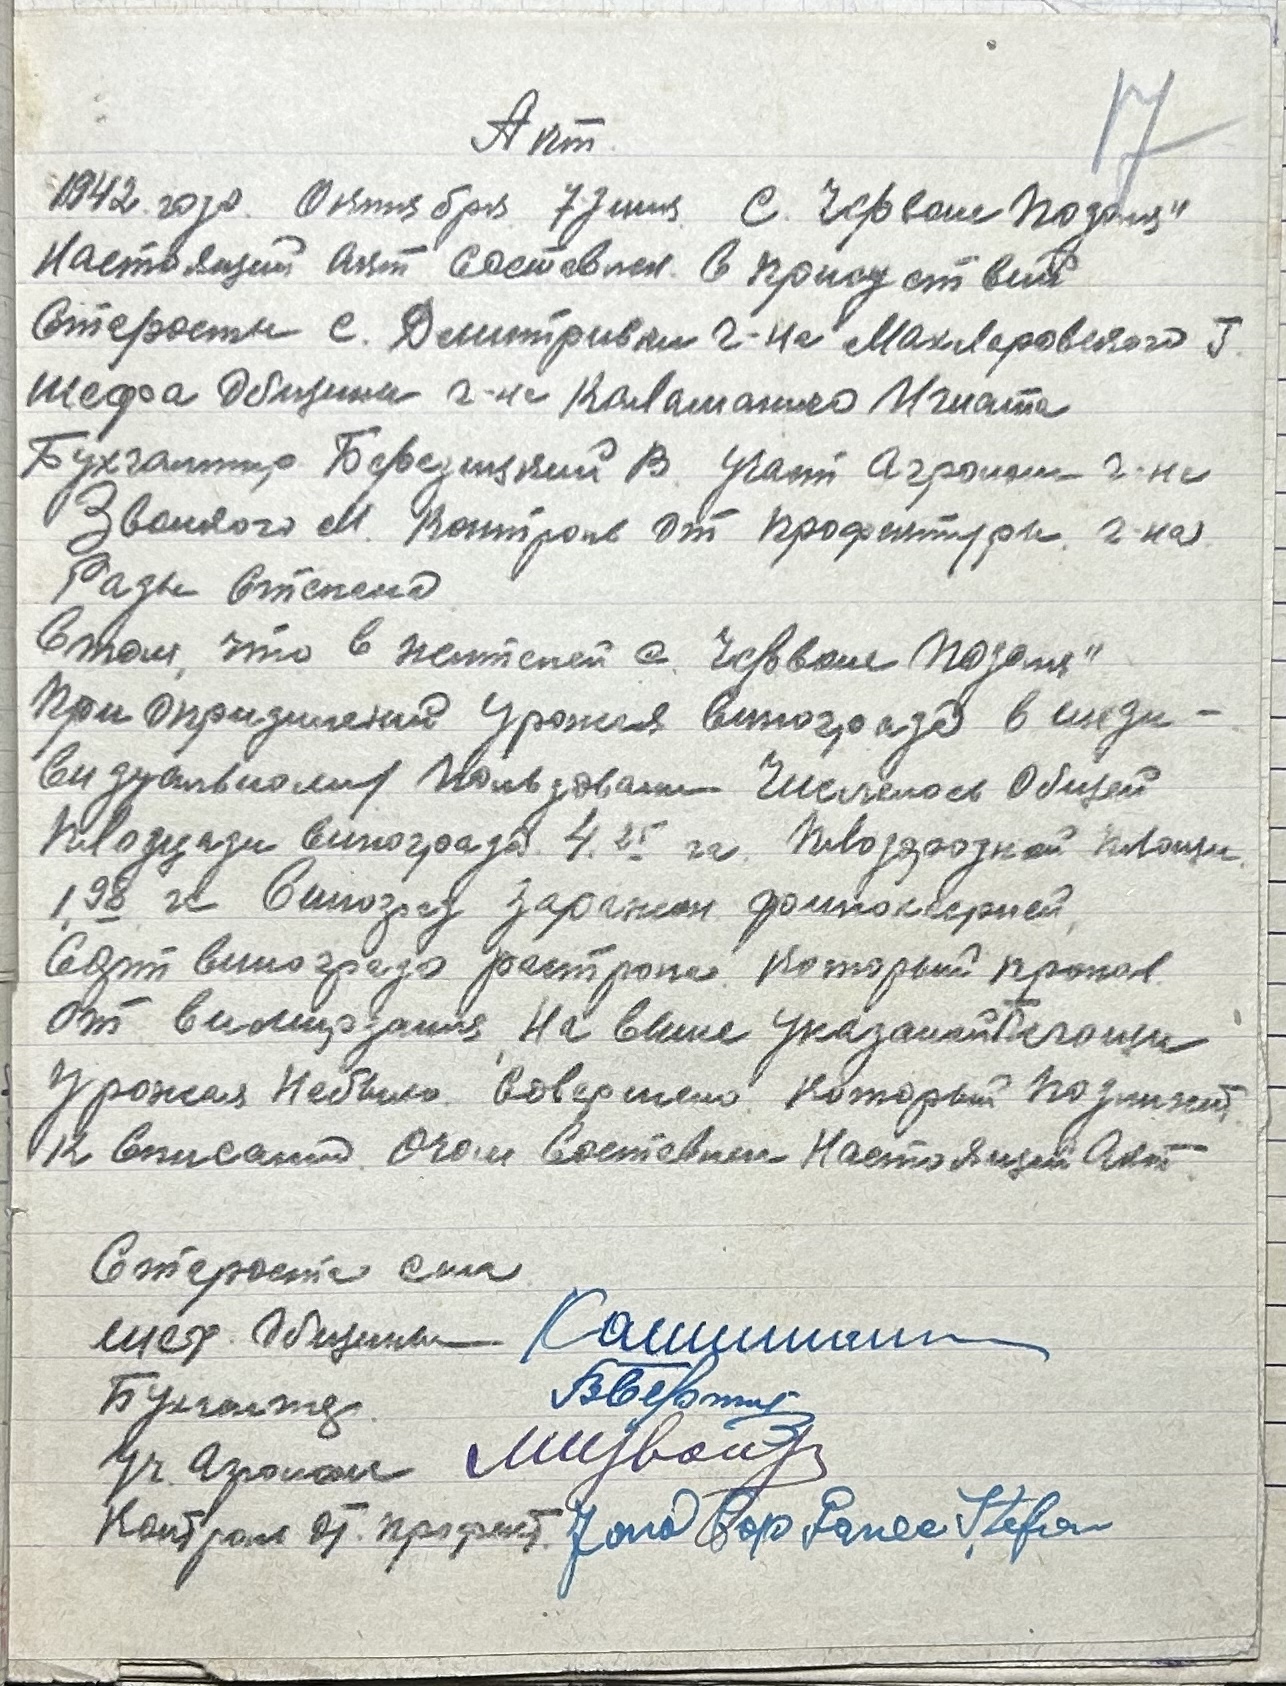 17
Акт.
1942 года. Октября 7 дня С. Червоне Подоля"
Настоящий Акт составлен в присуствий
Старосты с. Демитривки г-на Макларовского Г.
Шефа Общины г-на Каламанико Игната
Бухгалтир В. Участ Агроном г-на
Званского М. Контроль от Профектуры г-на
Рады Степана
Втом, что в жителей с. Червоне Подоля"
При Опридилений Урожая винограда в инди-
видуальному Пользовании Числелось Общей
Площади винограда 4.25 га. Плодородной площи.
1,98 га Виноград заражен
Сорт винограда растропа который пропал
от вимирзания На выше Указаной Площи
Урожая Небыло Совершено который Подлижит
к списанию. Очом Составлен Настоящий Акт.
Староста сила
шеф. Общины
Бухгалтер.
Уч. Агроном
Контроль От. Префект. Stefan